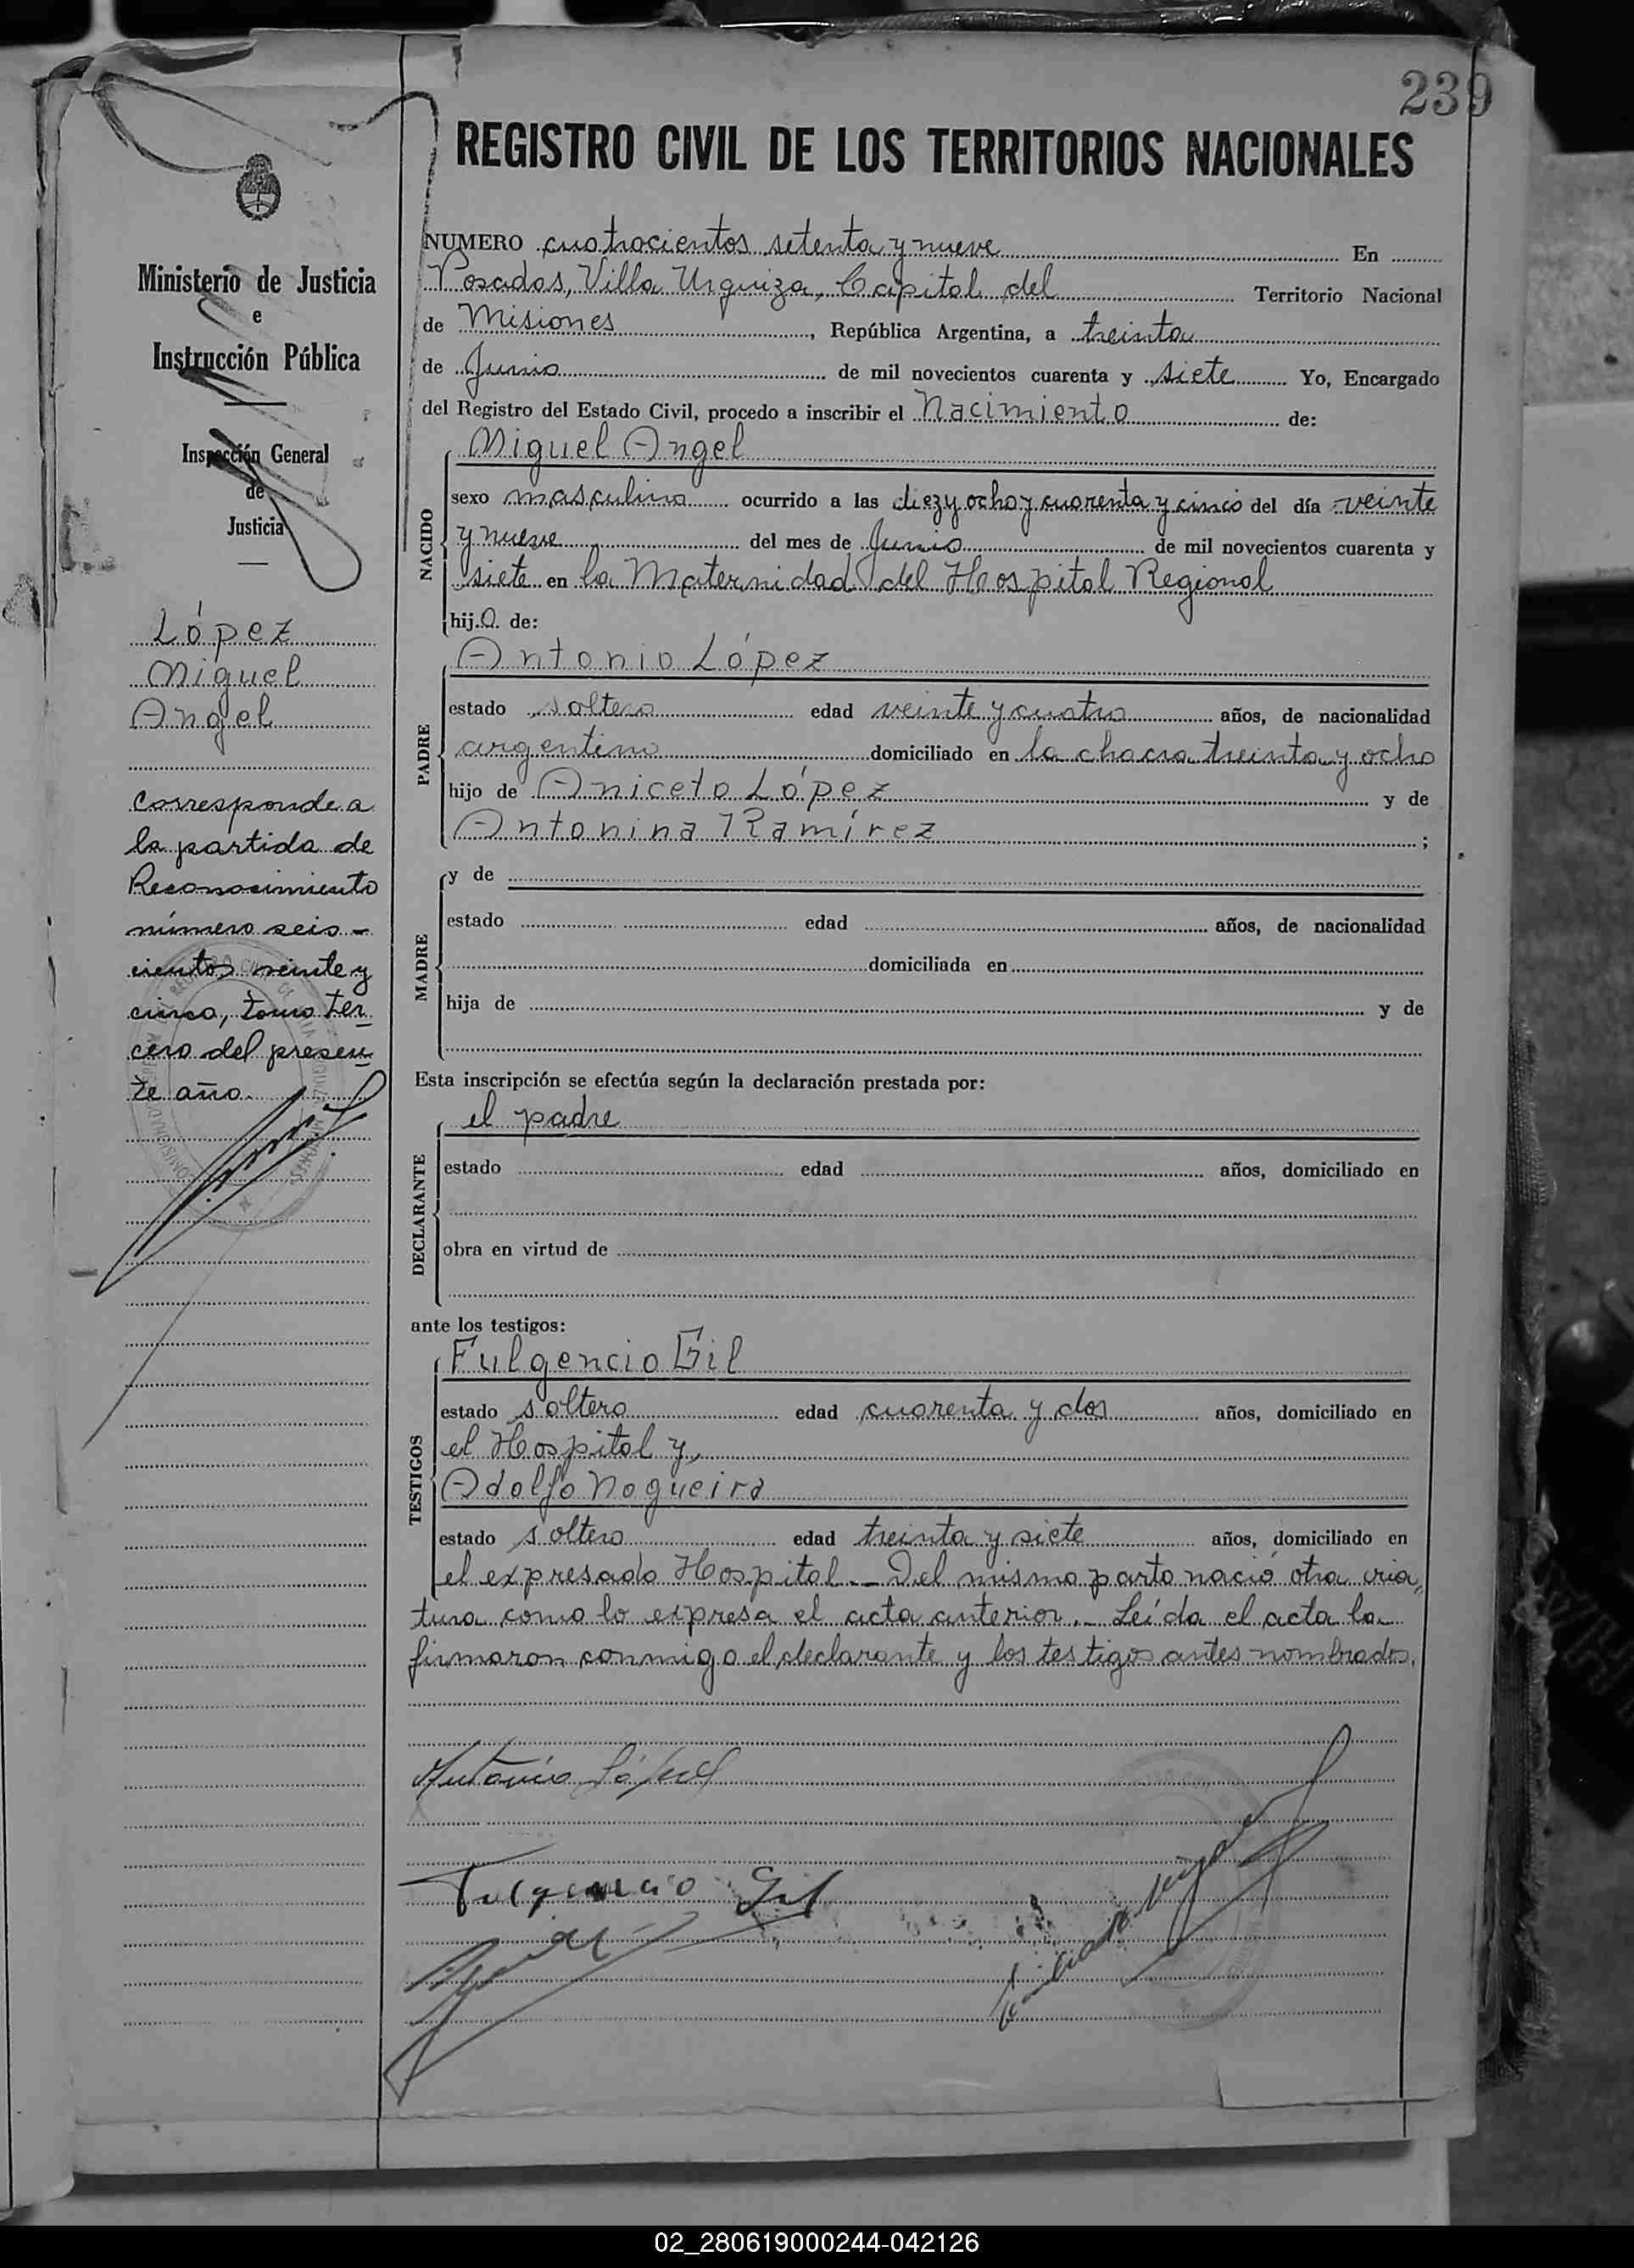 239
REGISTRO CIVIL DE LOS TERRITORIOS NACIONALES
Ministerio de Justicia
e
Instrucción Pública
Inspección General
de
Justicia
López
Miguel
Angel
Corresponde a
la partida de
Reconocimiento
número seis-
cientos veinte y
cinco, tomo ter-
cero del presen-
te año.
NUMERO cuatrocientos setenta y nueve En
Posadas, Villa Urquiza, Capital del Territorio Nacional
de Misiones, República Argentina, a treinta
de Junio de mil novecientos cuarenta y siete Yo, Encargado
del Registro del Estado Civil, procedo a inscribir el Nacimiento de:
NACIDO
Miguel Angel
sexo masculino ocurrido a las diez y ocho y cuarenta y cinco del día veinte
y nueve del mes de Junio de mil novecientos cuarenta y
siete en la Maternidad del Hospital Regional
hijo de:
PADRE
Antonio López
estado soltero edad veinte y cuatro años, de nacionalidad
argentino domiciliado en la chacra treinta y ocho
hijo de Aniceto López y de
Antonina Ramírez ;
MADRE
y de
estado edad años, de nacionalidad
domiciliada en
hija de y de
Esta inscripción se efectúa según la declaración prestada por:
DECLARANTE
el padre
estado edad años, domiciliado en
obra en virtud de
ante los testigos:
TESTIGOS
Fulgencio Gil
estado soltero edad cuarenta y dos años, domiciliado en
el Hospital y,
Adolfo Nogueira
estado soltero edad treinta y siete años, domiciliado en
el expresado Hospital.- Del mismo parto nació otra cria-
tura como lo expresa el acta anterior.- Leída el acta la
firmaron conmigo el declarante y los testigos antes nombrados.
Antonio López
Fulgencio Gil
02_280619000244-042126